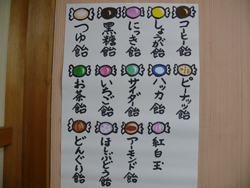 コーヒー飴
しょうが飴
にっき飴
黒糖飴
つゆ飴
ピーナッツ飴
ハッカ飴
サイダイ飴
いちご飴
お茶飴
紅白玉
アーモンド飴
ほしぶどう飴
どんぐり飴